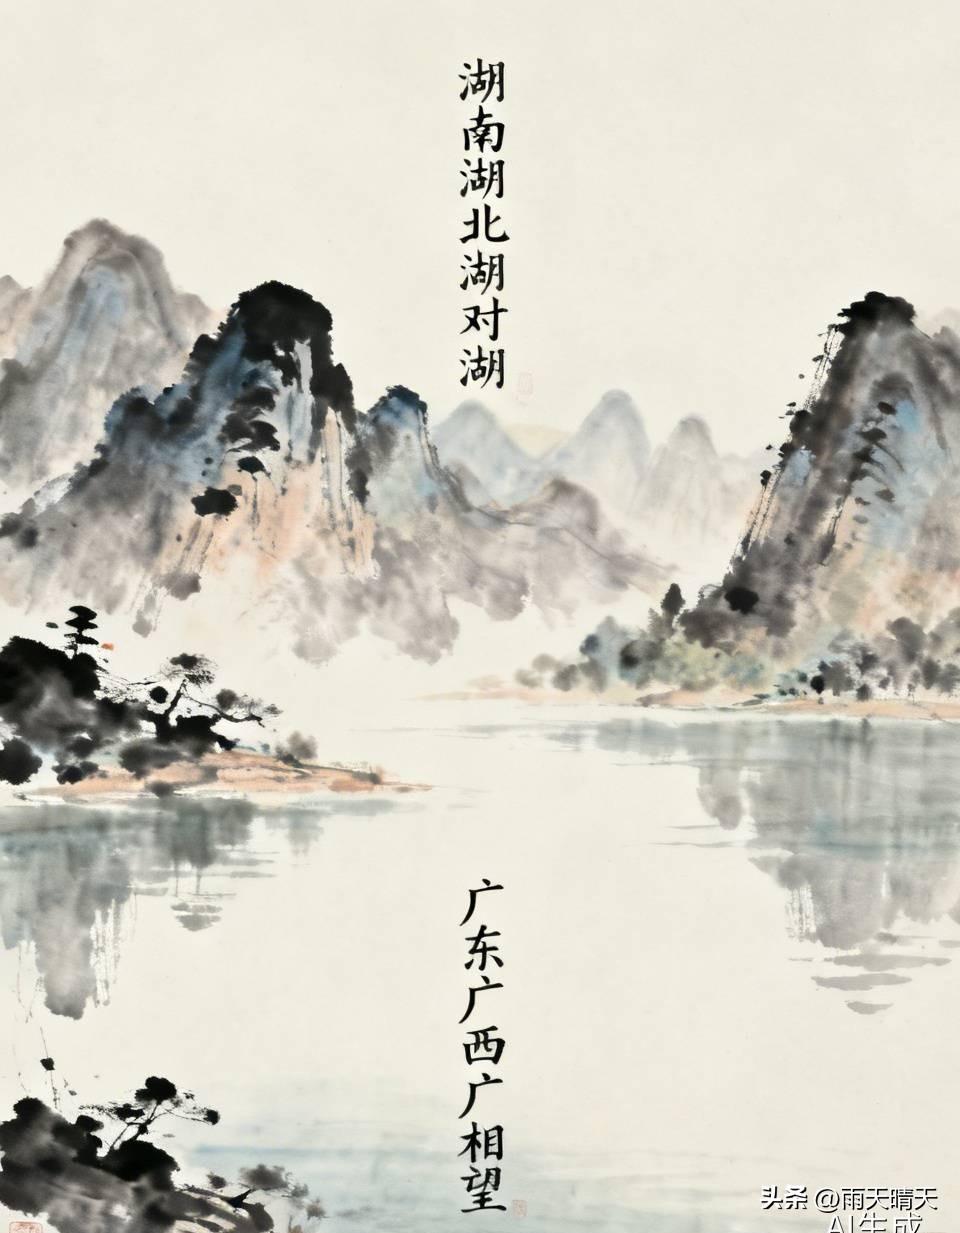 湖南湖北湖对湖
广东广西广相望
头条 @雨天晴天
AI生成